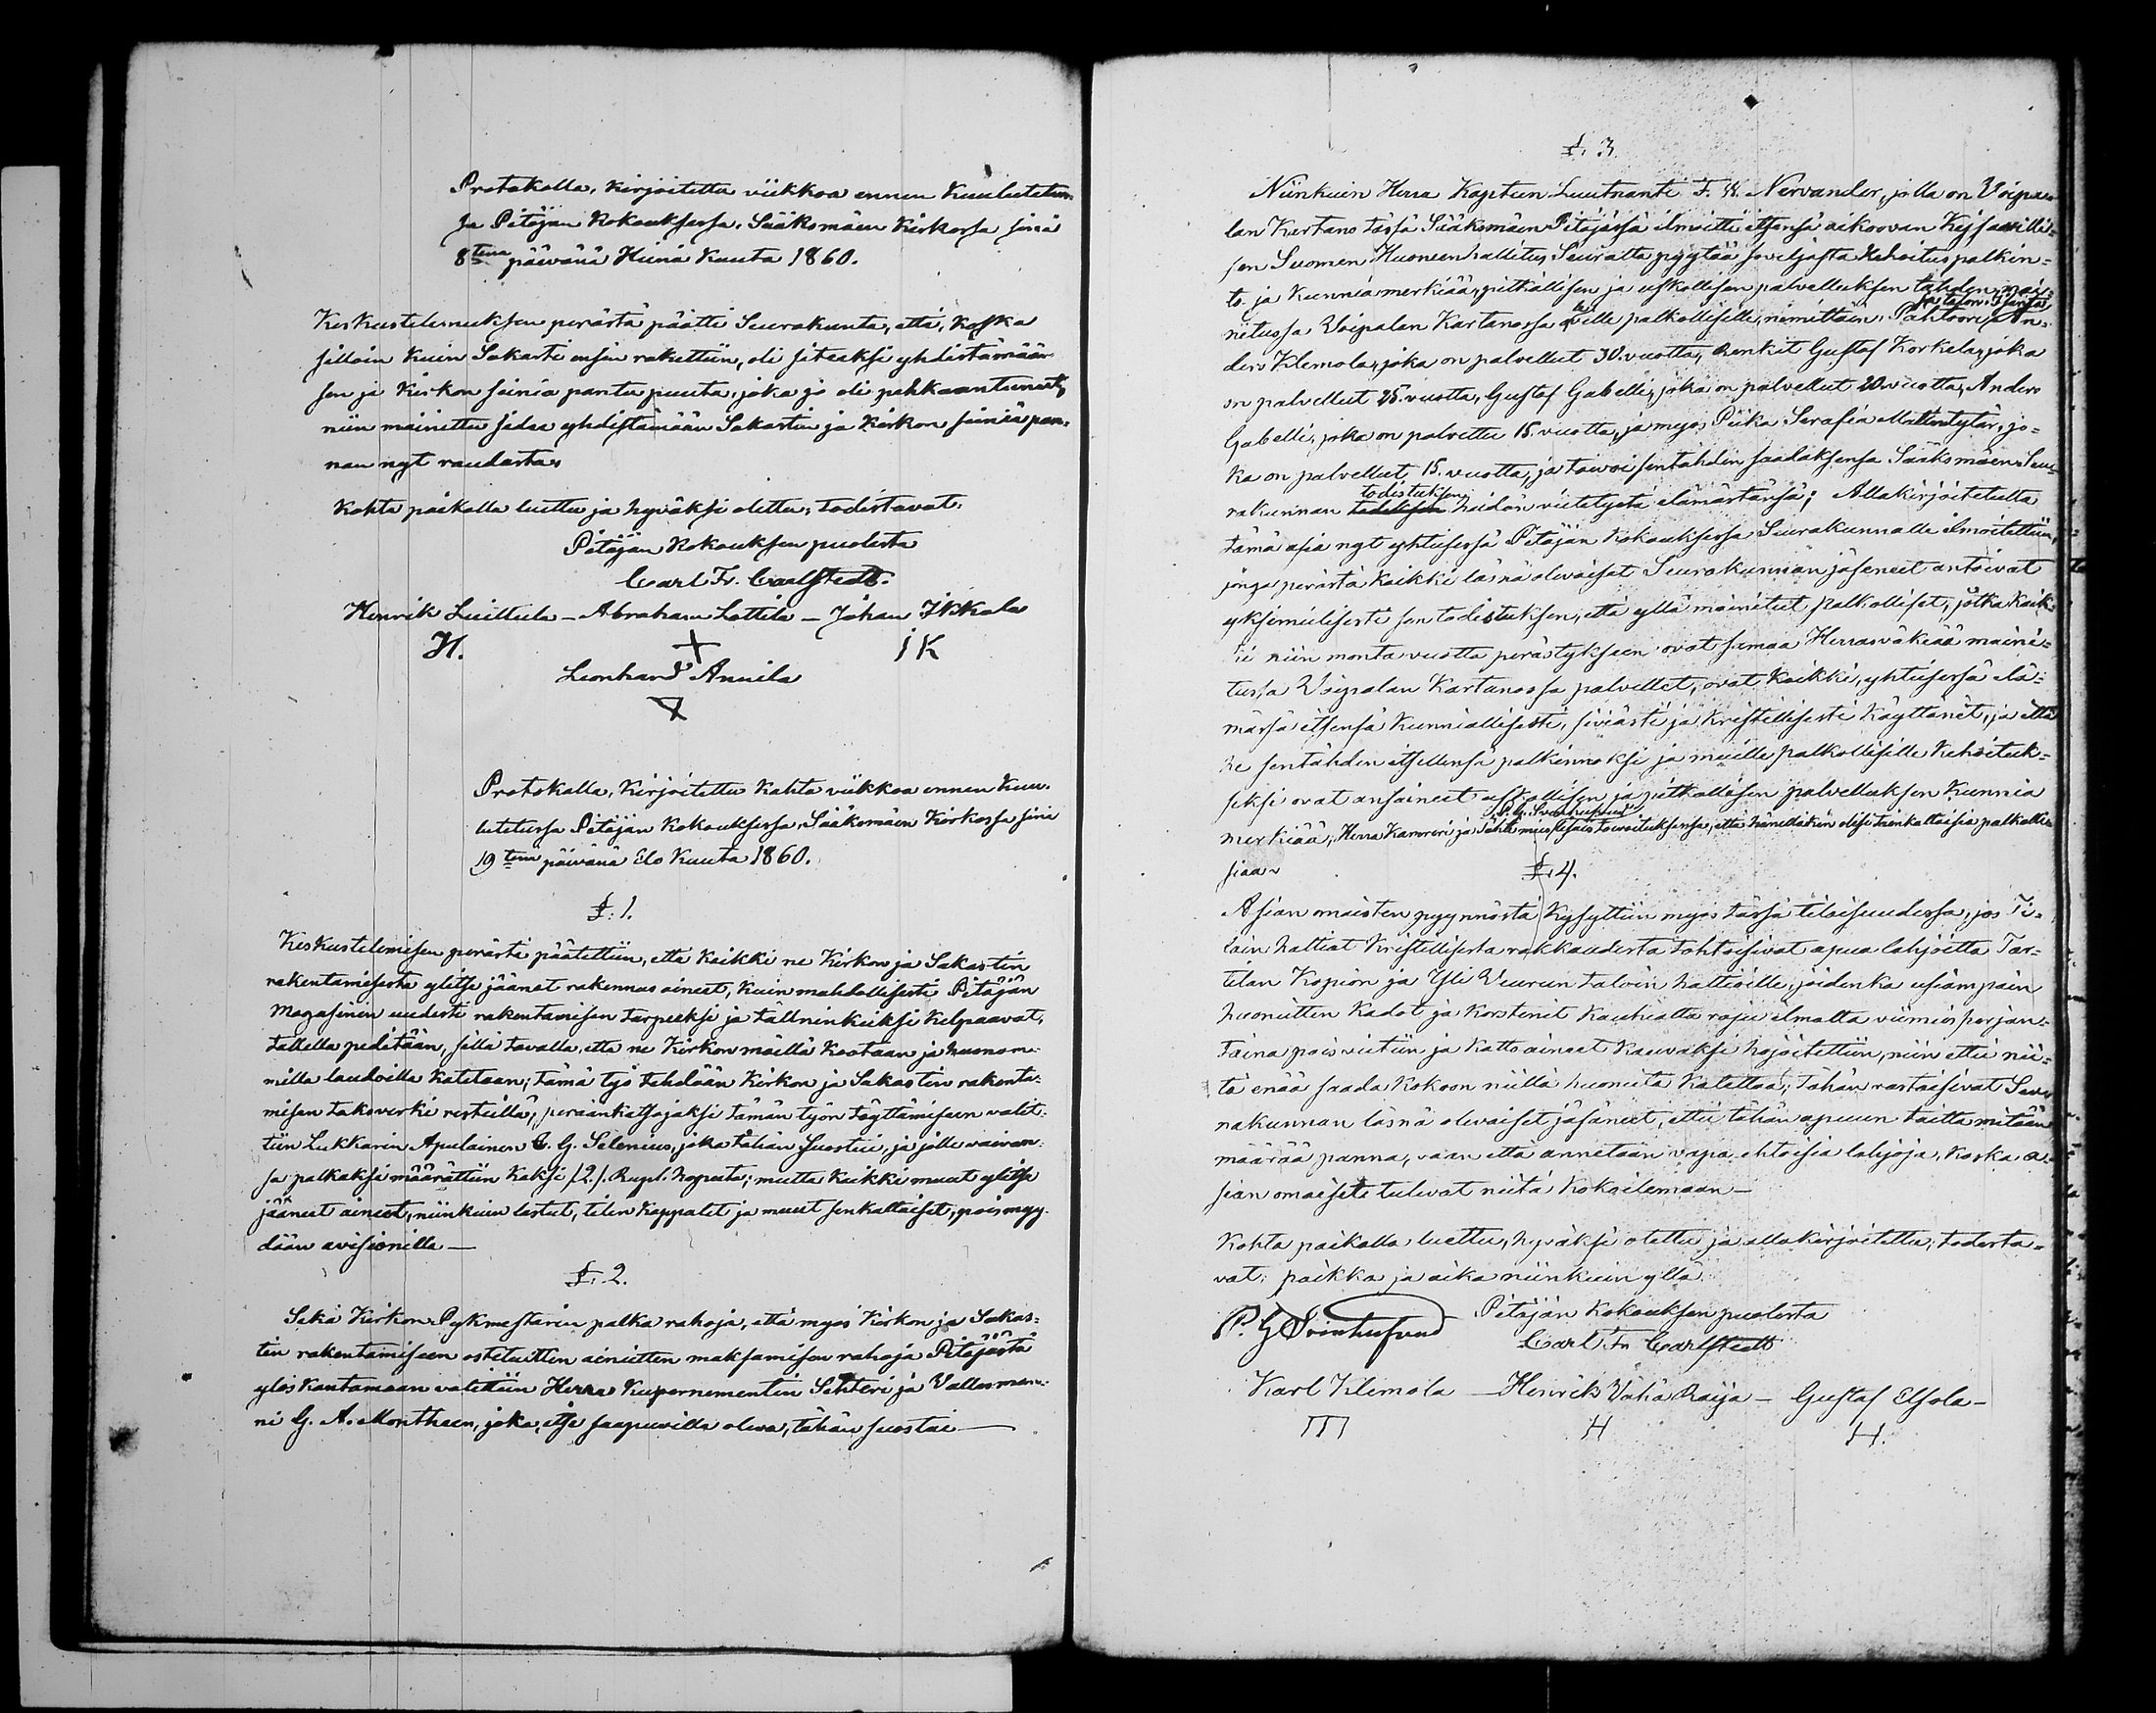 Protokolla, Kirjoitettu viikkoa ennen Kuulutetus-
sa Pitäjän Kokouksessa, Sääksmäen Kirkossa sinä
8tena päivänä Heinä Kuuta 1860.
Keskustelemuksen perästä päätti Seurakunta, että, koska
silloin kuin Sakasti ensin rakettiin, oli siteeksi yhdistämään
sen ja Kirkon seiniä pantu puuta, joka jo oli pehkaantunut,
niin mainittu sidea yhdistämään Sakastin ja Kirkon seiniä pan-
nan nyt raudasta,
Kohta paikalla luettu ja hyväksi otettu, todistavat.
Pitäjän Kokouksen puolesta
Carl Fr. Carlstedt.
Henrik Luittula — Abraham Lottila — Johan Ikkala
H. X IK
Leonhard Annila
Protokalla, Kirjoitettu Kahta viikkoa ennen Kuu-
lutetussa Pitäjän Kokouksessa, Sääksmäen Kirkossa sinä
19tena päivänä Elo Kuuta 1860.
§: 1.
Keskustelemisen perästi päätettiin, että kaikki ne Kirkon ja Sakastin
rakentamisesta ylitse jäänet rakennus aineet, kuin mahdollisesti Pitäjän
Magasinin uudesti rakentamisen tarpeeksi ja tällninkiksi kelpaavat,
tallella pidetään, sillä tavalla, että ne Kirkon mäellä Kootaan ja huonom-
milla laudoilla katetaan; tämä työ tehdään Kirkon ja Sakastin rakenta-
misen taksverki resteillä; peräänkatsojaksi tämän työn täyttämiseen valit-
tiin Lukkarin Apulainen G. G. Selenius, joka tähän suostui, ja jolle vaivan-
sa palkaksi määrättiin kaksi /2./ Rupl. hopeata; mutta kaikki muut ylitse
jääneet aineet, niinkuin lastut, tilen kappalet ja muut senkaltaiset, pois myy-
dään avisionilla —
§: 2.
Sekä Kirkon Pykmestarin palka rahoja, että myös Kirkon ja Sakas-
tin rakentamiseen ostetuitten ainetten maksamisen rahoja Pitäjästä
ylös kantamaan valittiin Herra Kupernementin Sihteri ja Vallesman-
ni G. A. Montheen, joka, itse saapuvilla oleva, tähän suostui —
§: 3.
Niinkuin Herra Kaptein Luutnanti F. W. Nervander, jolla on Voipa-
lan Kartano tässä Sääksmäen Pitäjässä ilmoitti itsensä aikoovan Keisarilli-
sen Suomen Huoneenhallitus Seuralta pyytää soveljasta Kehoitus palkin-
to ja Kunnia merkiää, pitkällisen ja uskollisen palvelluksen tähden mai-
nitussa Voipalan Kartanossa
palkollisille, nimittäin: Pahtoori ja An-
ders Klemola, joka on palvellut 30. vuotta, Renkit Gustaf Korkela, joka
on palvellut 25. vuotta, Gustaf Gabelli, joka on palvellut 20. vuotta, Anders
Gabelli, joka on palvellu 15. vuotta, ja myös Piika Serafia Matintytär, jo-
ka on palvellut 15. vuotta, ja toivoi sentähden saadaksensa Sääksmäen Seu-
rakunnan todistuksen heidän vietetystä elämästänsä; Allakirjoitetulta
tämä asia nyt yhteisessä Pitäjän Kokouksessa Seurakunnalle ilmoitettiin,
jonga perästä kaikki läsnä olevaiset Seurakunnan jäseneet antoivat
yksimielisesti sen todistuksen, että yllä mainitut palkolliset, jotka kaik-
ki niin monta vuotta perästyksseen ovat samaa Herrasväkiää maini-
tussa Voipalan Kartanossa palvellet, ovat kaikki, yhteisessä elä-
mässä itsensä kunniallisesti, siviästi ja kristillisesti käyttänet, ja että
he sentähden itsellensä palkinnoksi ja muille palkollisille kehoituk-
seksi ovat ansaineet uskollisen ja pitkällisen palvelluksen Kunnia
merkiää; Herra Kamreri ja P. G. Svinhufvud toivoituksensa, että hänelläkin olisi senkaltaisia palkolli-
siaa.
§: 4.
Asian omaisten pyynnöstä kysyttiin myös tässä tilaisuudessa, jos Ti-
lain haltiat Kristillisestä rakkaudesta tahtoisivat apua lahjoitta Tar-
tilan Kopion ja Yli Vuurun talvin haltioille, joidenka usiampain
huonetten kadot ja korstenit kauhialta raju ilmalta viimis perjan-
taina pois vietiin ja katto aineet kauvaksi hajoitettiin, niin ettei nii-
tä enää saada kokoon niillä huoneita katettaa; tähän vastaisivat Seu-
rakunnan läsnä olevaiset jäsäneet, ettei tähän apuun taitta mitään
määrää panna, vaan että annetaan vapa ehtoisia lahjoja, koska a-
sian omaiset tulevat niitä kokoilemaan —
Kohta paikalla luettu, hyväksi otettu ja allakirjoitettu, todista-
vat: paikka ja aika niinkuin yllä.
P. G Svinhufvud Pitäjän Kokouksen puolesta
Carl Fr Carlstedt
Karl Klemola — Henrik Vähä Raija — Gustaf Elsola —
H H.